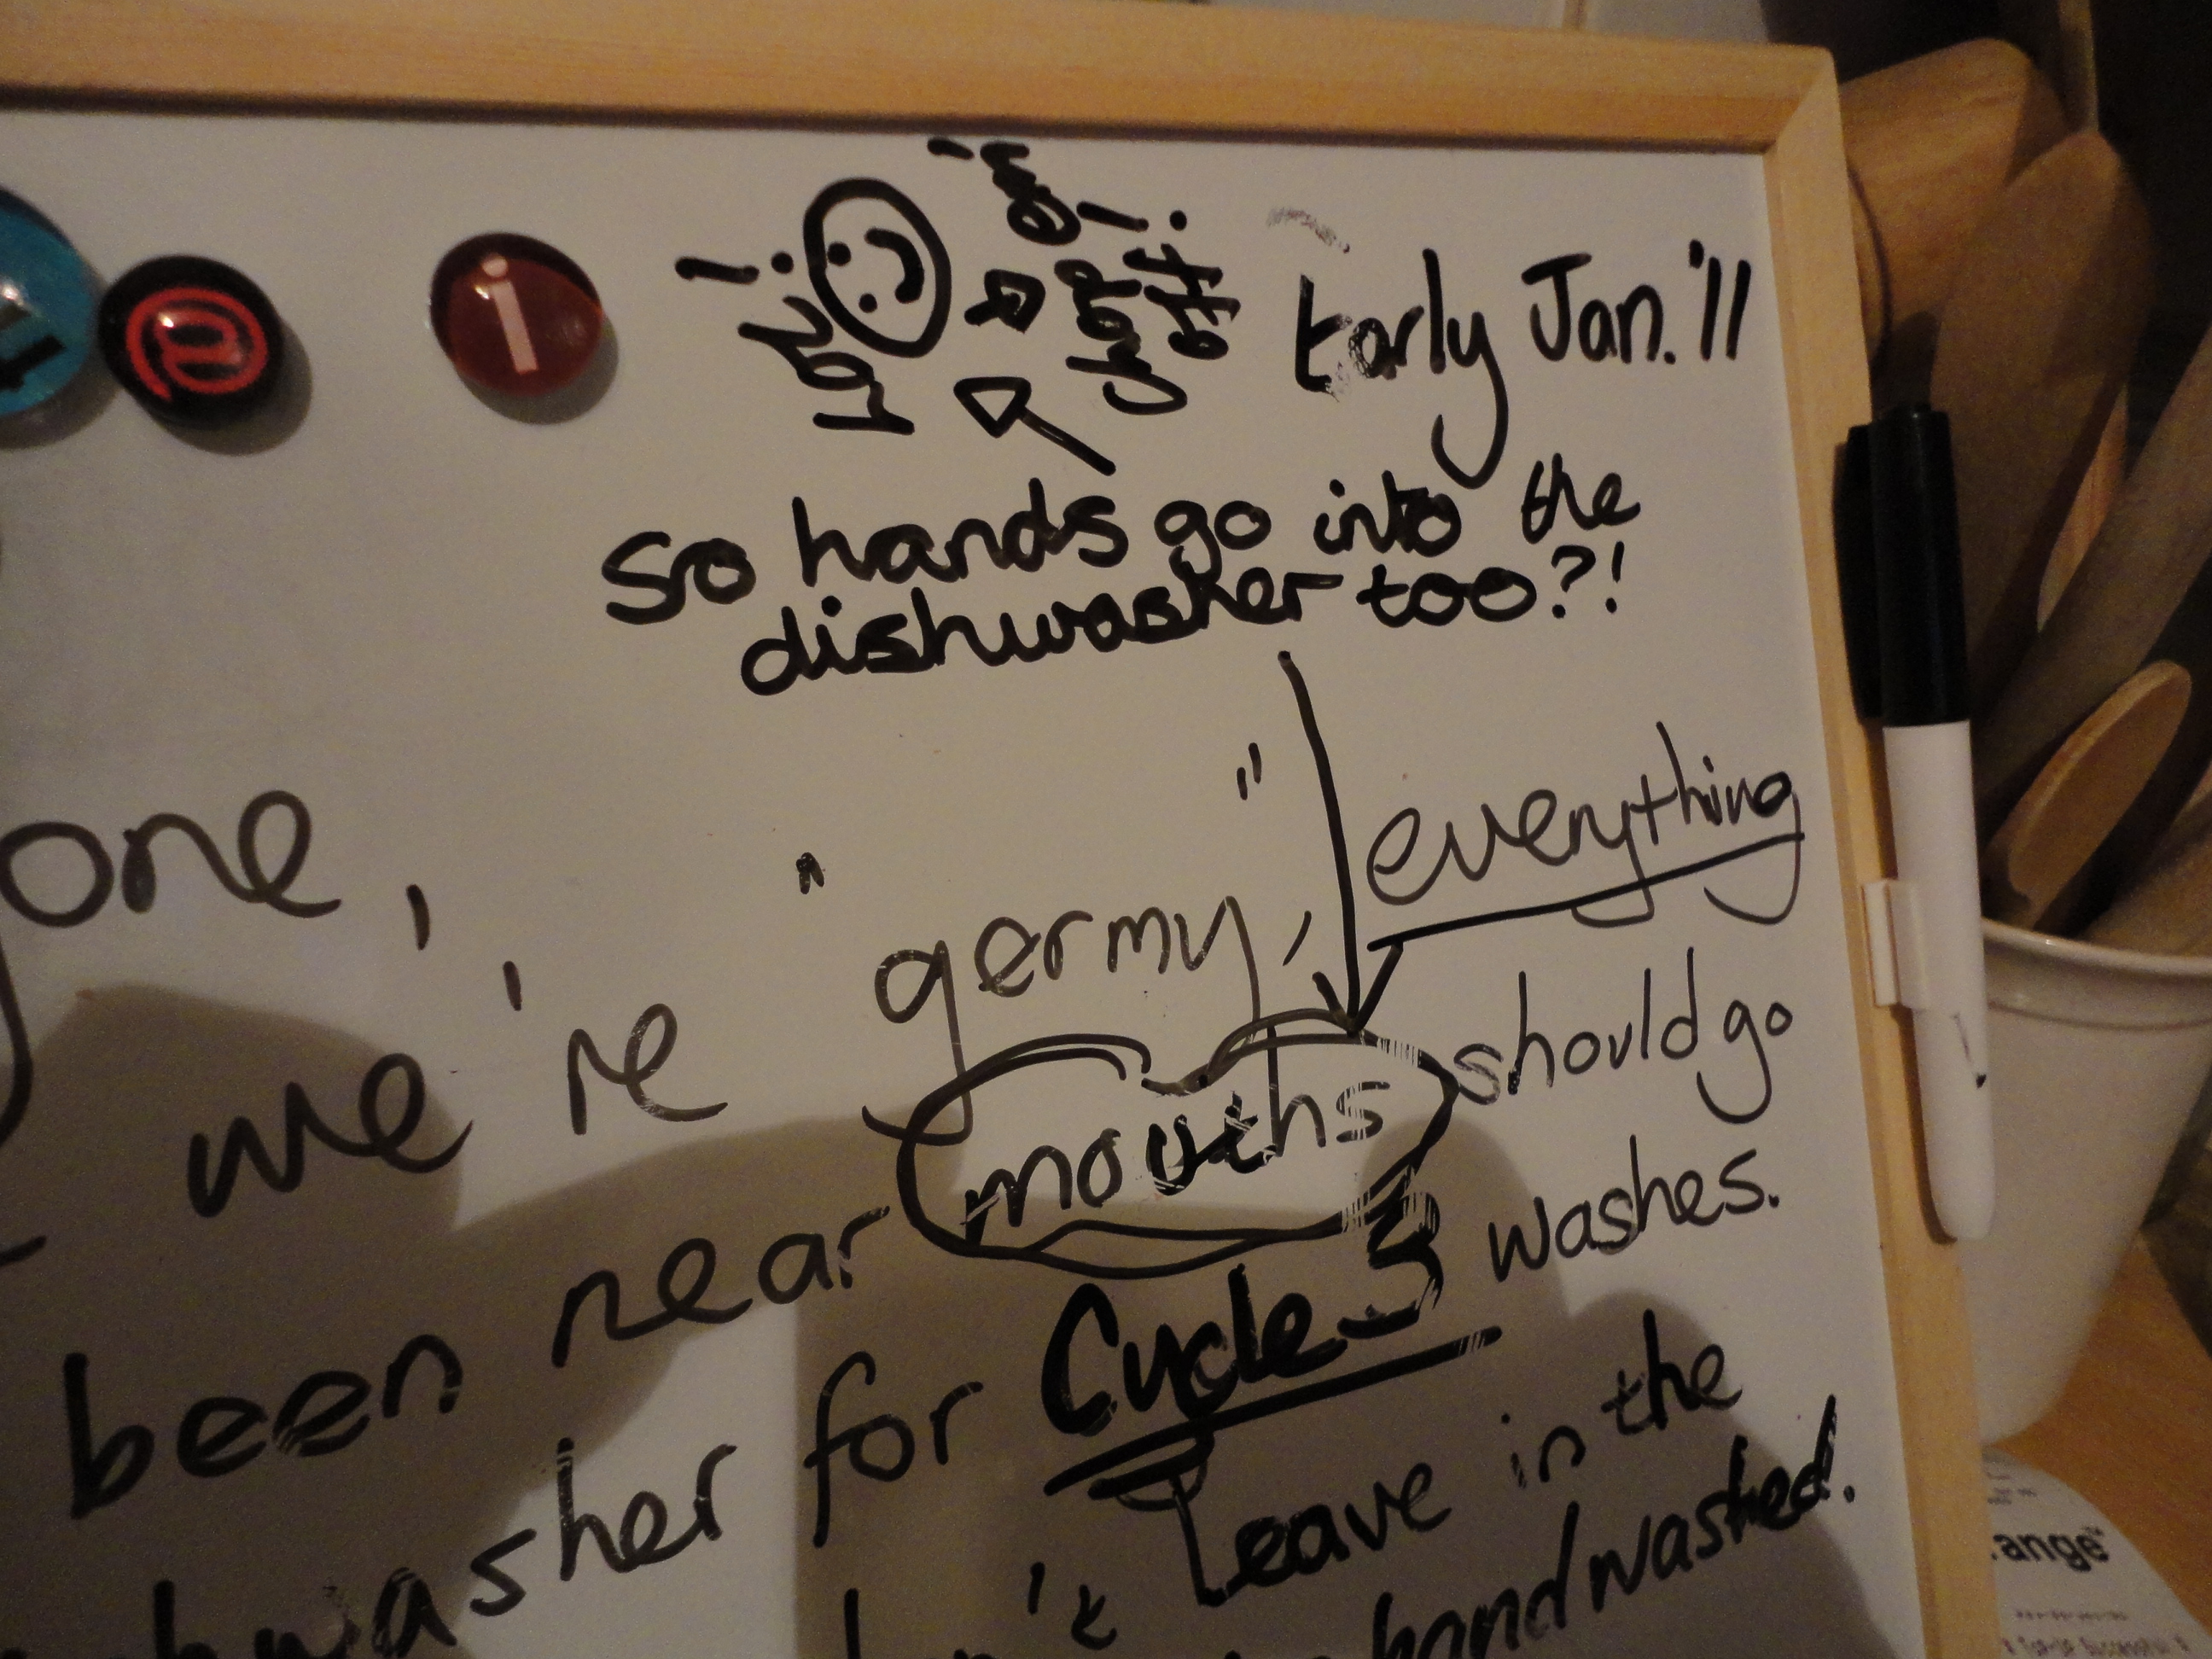 @ i
Early Jan. '11
So hands go into the
dishwasher too?!
one,
we're "germy",
everything
been near mouths should go
washer for Cycle 3 washes.
Leave in the
handwashed.
ange™